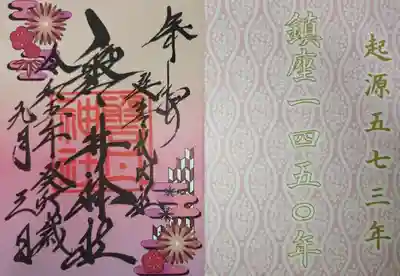 起源五七三年
鎮座一四五〇年
奉拝
井神社
令和五年癸卯歳
元月 三日
神社